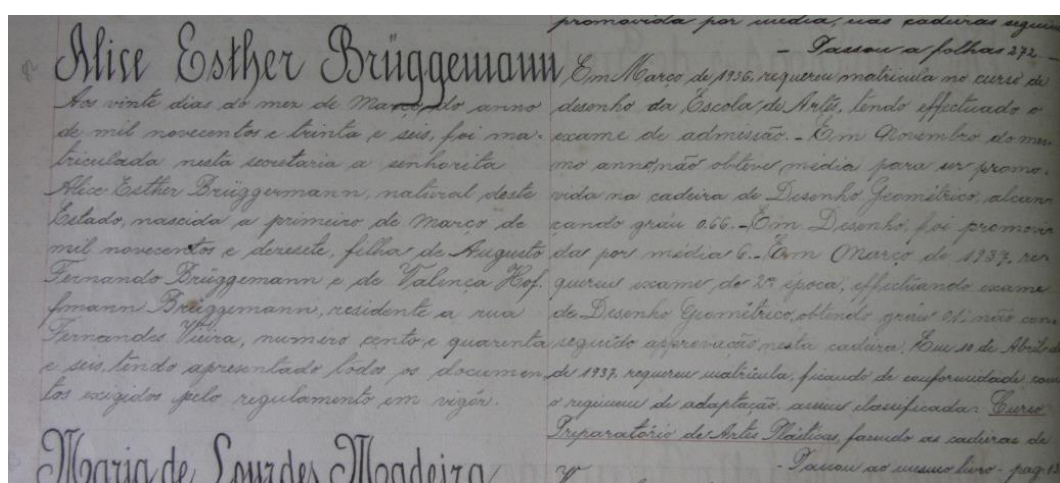 Alice Esther Brüggemann
Aos vinte dias do mez de Março do anno
de mil novecentos e trinta e seis, foi ma-
triculada nesta secretaria a senhorita
Alice Esther Brüggermann, natural deste
Estado, nascida a primeiro de Março de
mil novecentos e dezesete, filha de Augusto
Fernando Brüggemann e de Valença Hof-
fmann Brüggemann, residente a rua
Fernandes Vieira, numero cento e quarenta
e seis, tendo apresentado todos os documen-
tos exigidos pelo regulamento em vigôr.
Maria de Lourdes Madeira
promovida por media, nas cadeiras
- Passou a folhas 272. -
Em Março de 1936, requereu matricula no curso de
desenho da Escola de Artes, tendo effectuado o
exame de admissão. - Em Novembro do mes-
mo anno, não obteve média para ser promo-
vida na cadeira de Desenho Geométrico, alcan-
çando gráu 0.66. - Em Desenho, foi promovi-
da por média 6. - Em Março de 1937, re-
quereu exame de 2ª época, effectuando exame
de Desenho Geométrico, obtendo gráu não con-
seguido approvação nesta cadeira. Em 10 de Abril de
de 1937, requereu matrícula, ficando de conformidade com
o regimen de adaptação, assim classificada: Curso
Preparatório de Artes Plásticas, fazendo as cadeiras de
- Passou ao mesmo livro - pag.